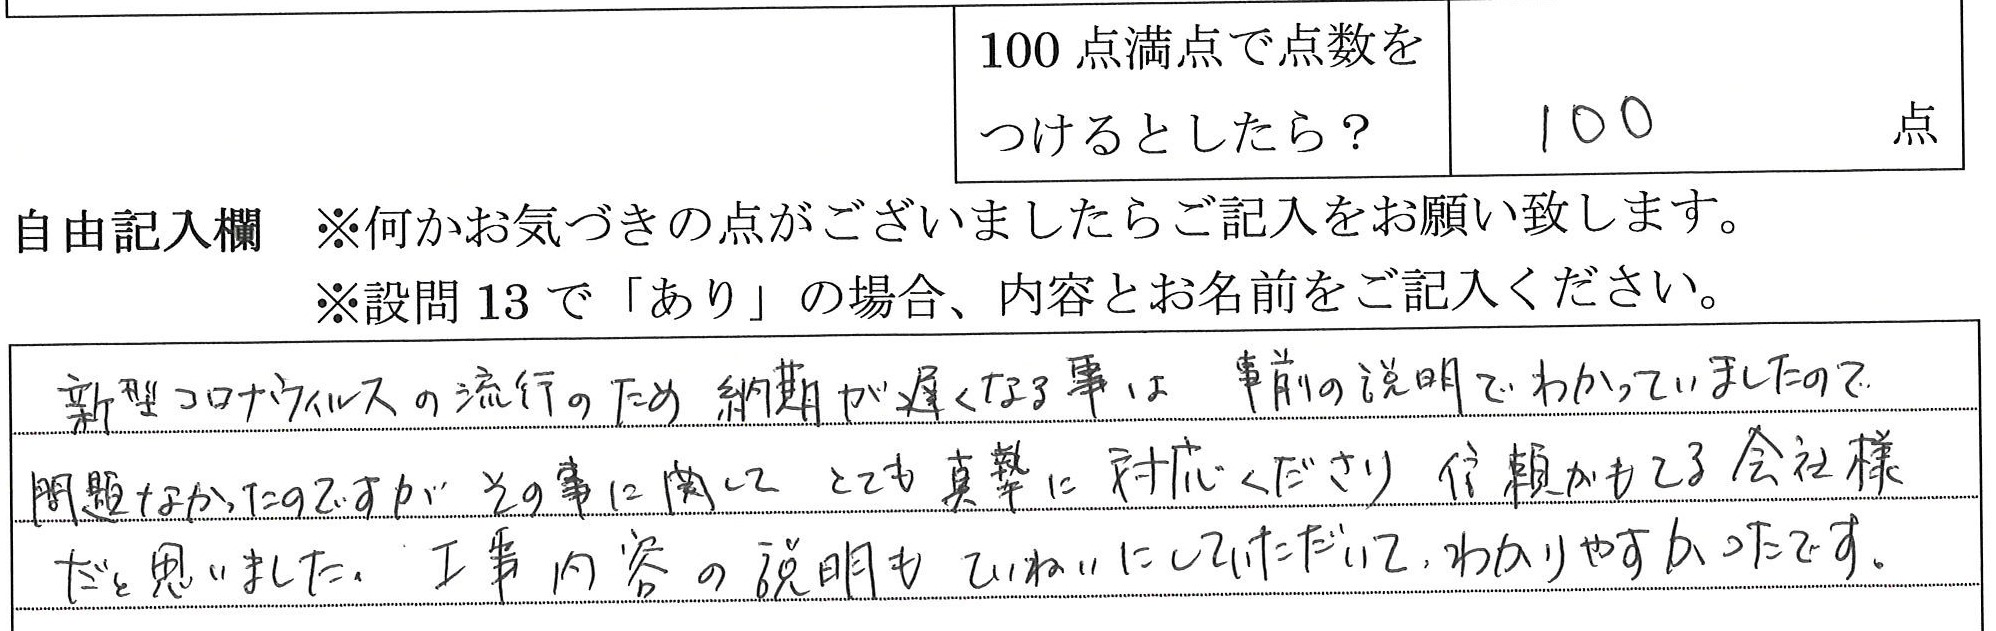 100 点満点で点数を
つけるとしたら？
100 点
自由記入欄 ※何かお気づきの点がございましたらご記入をお願い致します。
※設問 13 で「あり」の場合、内容とお名前をご記入ください。
新型コロナウィルスの流行のため 納期が遅くなる事は 事前の説明でわかっていましたので
問題なかったのですが その事に関して とても真摯に対応くださり 信頼がもてる会社様
だと思いました。工事内容の説明も ていねいにしていただいて、わかりやすかったです。